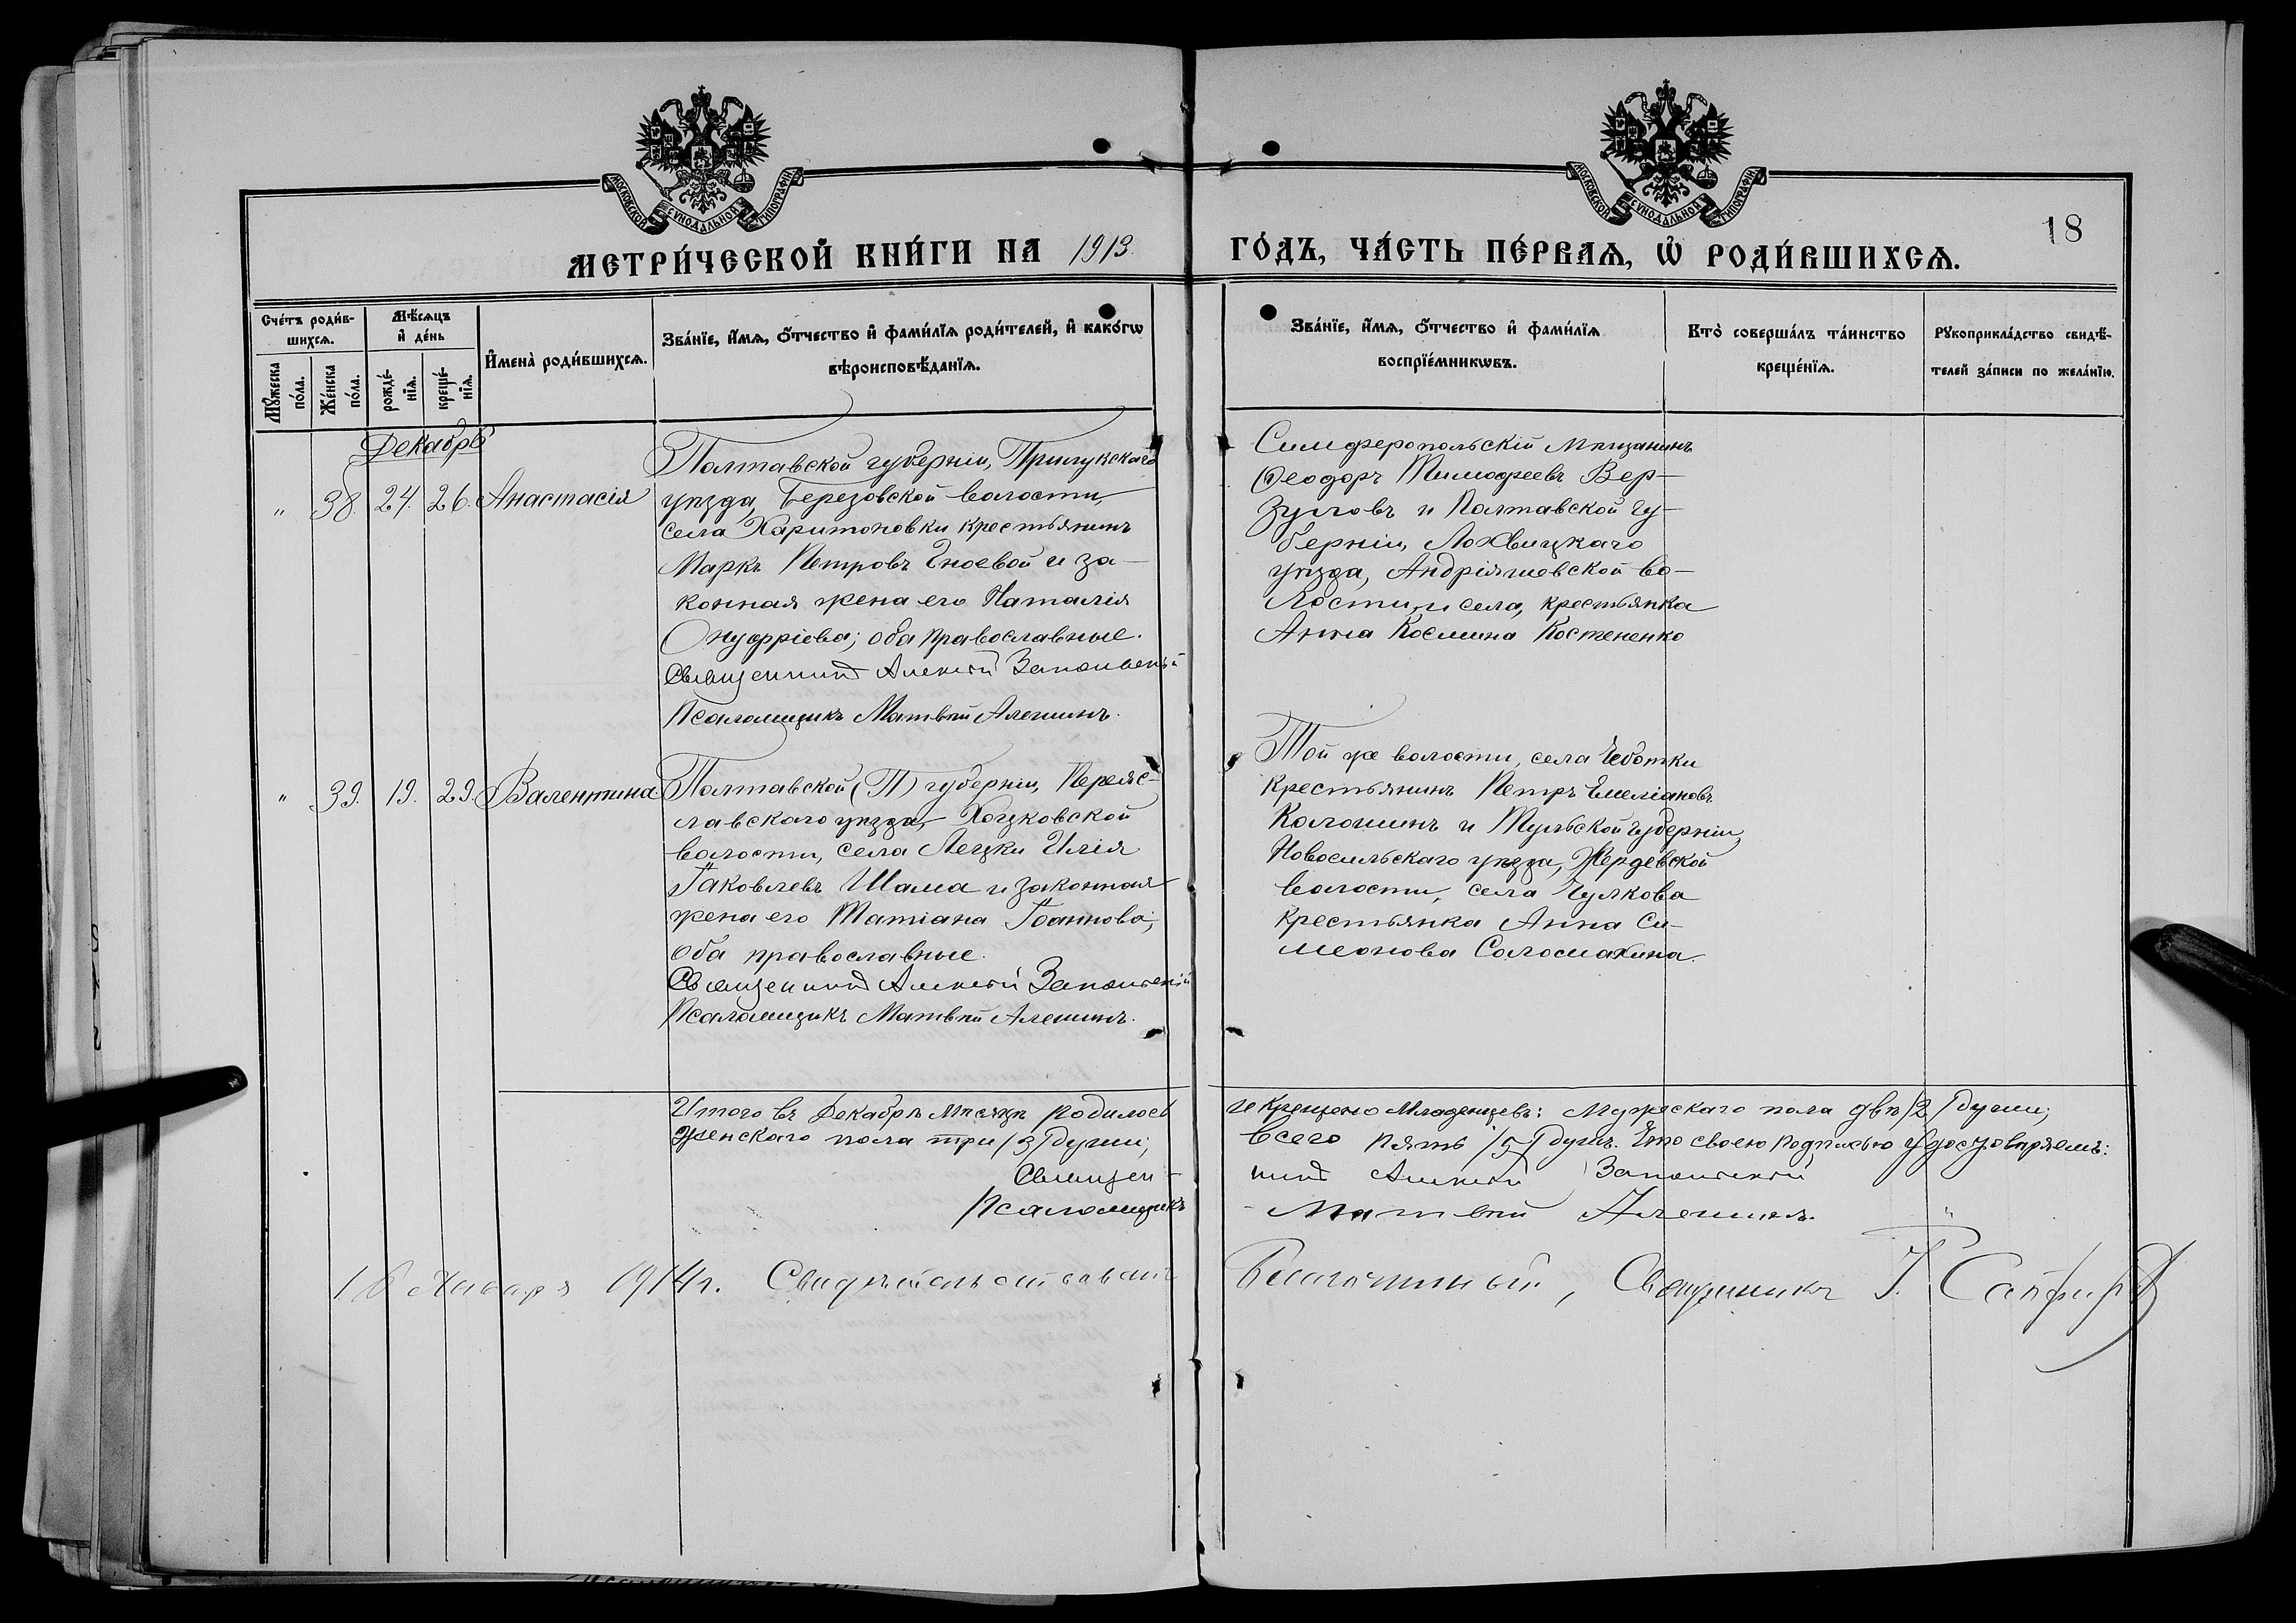 МОСКОВСКОЙ СѴНОДАЛЬНОЙ ТИПОГРАФІИ
МОСКОВСКОЙ СѴНОДАЛЬНОЙ ТИПОГРАФІИ
18
МЕТРИ́ЧЕСКОЙ КНИ́ГИ НА 1913.
ГО́ДЪ, ЧА́СТЬ ПЕ́РВАѦ, Ѡ҆ РОДИ́ВШИХСѦ.
Сче́тъ роди́в-
шихсѧ.
Мꙋ́жеска по́ла.
Же́нска по́ла.
Мѣ́сѧцъ
и҆ де́нь
рожде́-
нїѧ.
креще́-
нїѧ.
И҆мена̀ роди́вшихсѧ.
Зва́нїе, и҆́мѧ, ѻ҆́тчество и҆ фами́лїѧ роди́телей, и҆ како́гѡ
вѣроисповѣ́данїѧ.
Зва́нїе, и҆́мѧ, ѻ҆́тчество и҆ фами́лїѧ
воспрїе́мникѡвъ.
Кто̀ соверша́лъ та́инство
креще́нїѧ.
Рꙋкоприкла́дство свидѣ́-
телей за́писи по жела́нїю.
Декабрь
" 38. 24. 26. Анастасія
Полтавской губерніи, Прилукскаго
уѣзда, Березовской волости,
села Харитоновки крестьянинъ
Маркъ Петровъ Гноевой и за-
конная жена его Наталія
Онуфріева; оба православные.
Священникъ Алексѣй Запольскій
Псаломщикъ Матвѣй Алешинъ.
Симферопольскій мѣщанинъ
Ѳеодоръ Тимофеевъ Вер-
зуловъ и Полтавской гу-
берніи, Лохвицкаго
уѣзда, Андріяшевской во-
лости и села, крестьянка
Анна Косьмина Костененко
" 39. 19. 29. Валентина
Полтавской (П) губерніи, Переяс-
лавскаго уѣзда, Хоцковской
волости, села Лецки Илія
Іаковлевъ Шама и законная
жена его Татіана Іоаннова;
оба православные.
Священникъ Алексѣй Запольскій
Псаломщикъ Матвѣй Алешинъ.
Той же волости, села Чеботки
крестьянинъ Петръ Емеліановъ
Калошинъ и Тульской губерніи,
Новосильскаго уѣзда, Жердевской
волости, села Чулкова
крестьянка Анна Си-
меонова Соломахина.
Итого въ Декабрѣ мѣсяцѣ родилось и крещено младенцевъ: мужескаго пола двѣ /2/ души;
женскаго пола три /3/ души; всего пять /5/ душъ. Что своею подписью удостовѣряемъ:
Священникъ Алексѣй Запольскій
Псаломщикъ Матвѣй Алешинъ.
18 Января 1914 г. Свидѣтельствовалъ Благочинный, Священникъ І. Сапфировъ